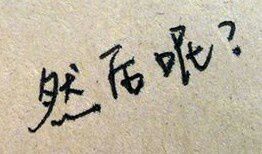 然后呢?